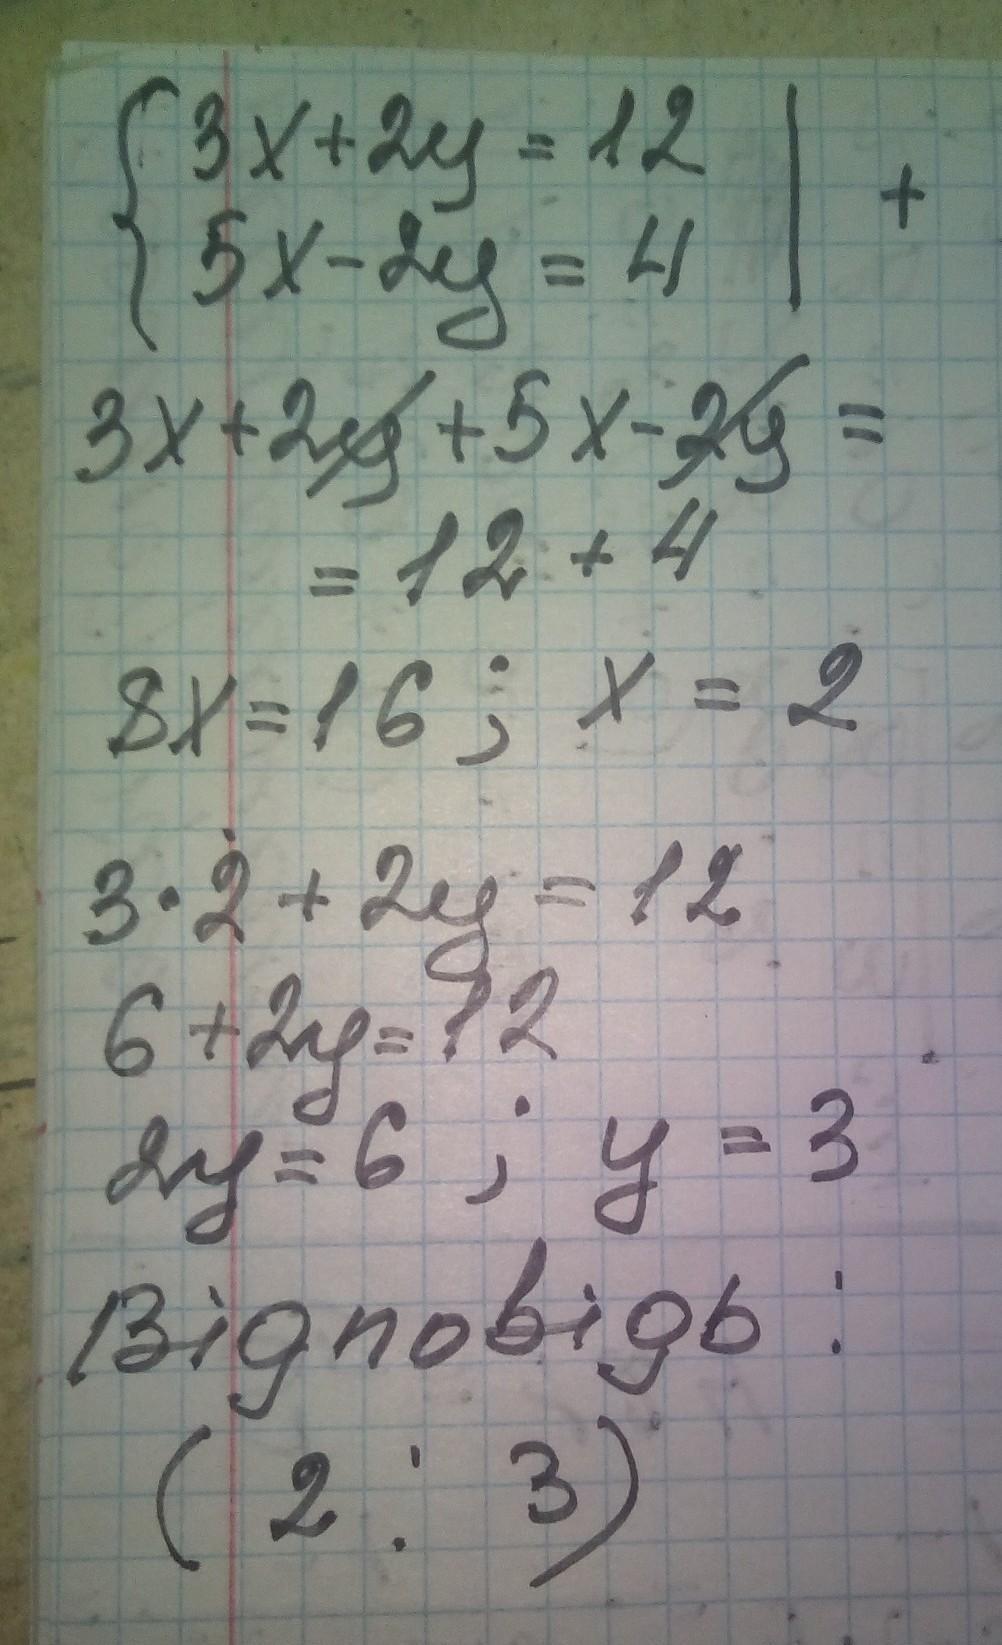 { 3x + 2y = 12 | +
5x - 2y = 4
3x + 2y + 5x - 2y =
= 12 + 4
8x = 16 ; x = 2
3 · 2 + 2y = 12
6 + 2y = 12
2y = 6 ; y = 3
Відповідь :
( 2 : 3 )